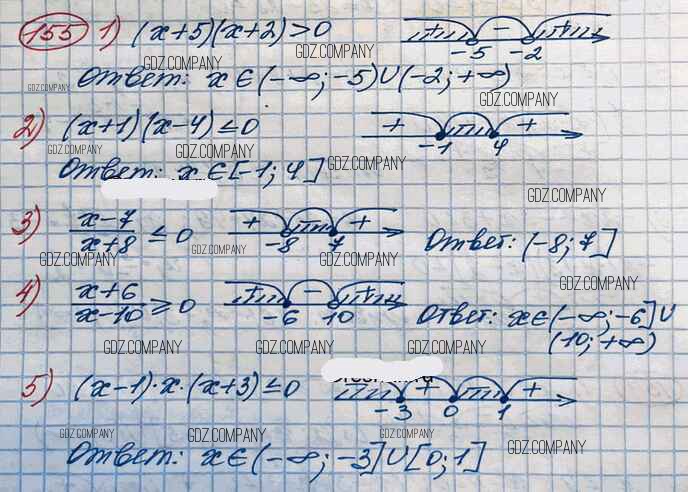 155 1) (x+5)(x+2)>0 + - + -5 -2
GDZ.COMPANY GDZ.COMPANY
Ответ: x∈(-∞;-5)∪(-2;+∞)
GDZ.COMPANY GDZ.COMPANY
2) (x+1)(x-4)≤0 + + -1 4
GDZ.COMPANY GDZ.COMPANY GDZ.COMPANY
Ответ: x∈[-1;4]
GDZ.COMPANY
3) x-7/x+8 ≤ 0 + + -8 7 Ответ: (-8;7]
GDZ.COMPANY GDZ.COMPANY GDZ.COMPANY
4) x+6/x-10 ≥ 0 + - + -6 10 Ответ: x∈(-∞;-6]∪
GDZ.COMPANY
(10;+∞)
GDZ.COMPANY GDZ.COMPANY GDZ.COMPANY
5) (x-1)·x·(x+3)≤0 + + -3 0 1
GDZ.COMPANY GDZ.COMPANY GDZ.COMPANY
Ответ: x∈(-∞;-3]∪[0;1]